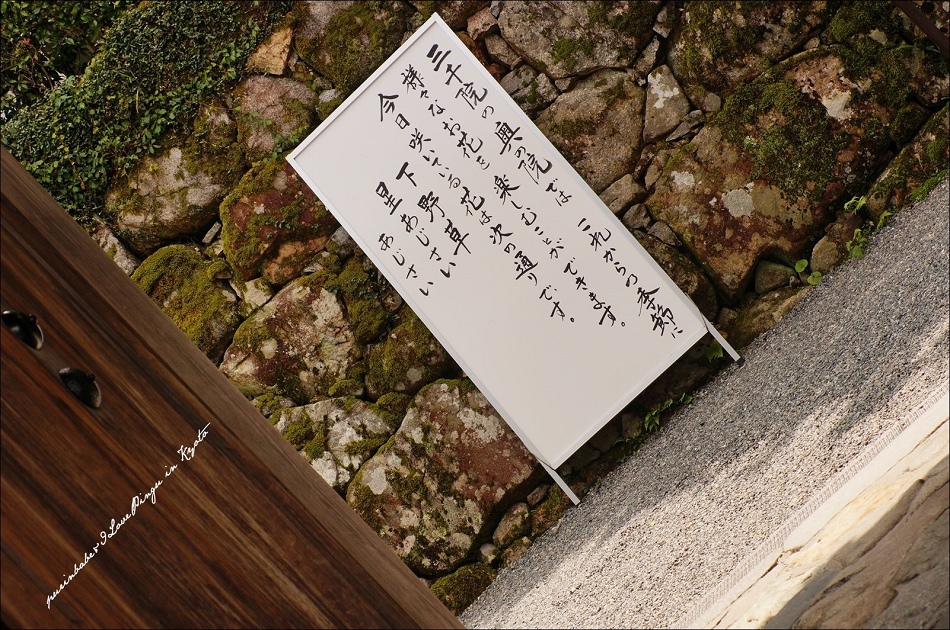 三千院の奥の院では これからの季節に
様々なお花を楽しむことができます。
今日咲いている花は次の通りです。
下野草
星あじさい
あじさい
pusinbabe & I Love Pingu in Kyoto